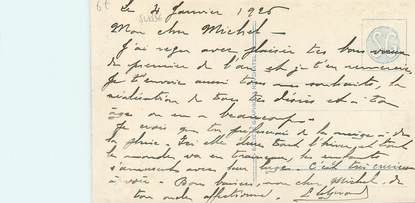 6€
Suisse
Le 4 Janvier 1926
Mon cher Michel
J'ai reçu avec plaisir tes bons vœux
de premier de l'an et je t'en remercie
Je t'envoie aussi tous mes souhaits, la
réalisation de tous tes désirs et à ton
âge on en a beaucoup.
Je crois que tu préfèrerais de la neige à de
la pluie. Ici elle dure tout l'hiver et tout
le monde va en traineau, les enfants
s'amusent avec leur luge. C'est très
à voir. Bons baisers, mon cher Michel, de
ton oncle affectionné.